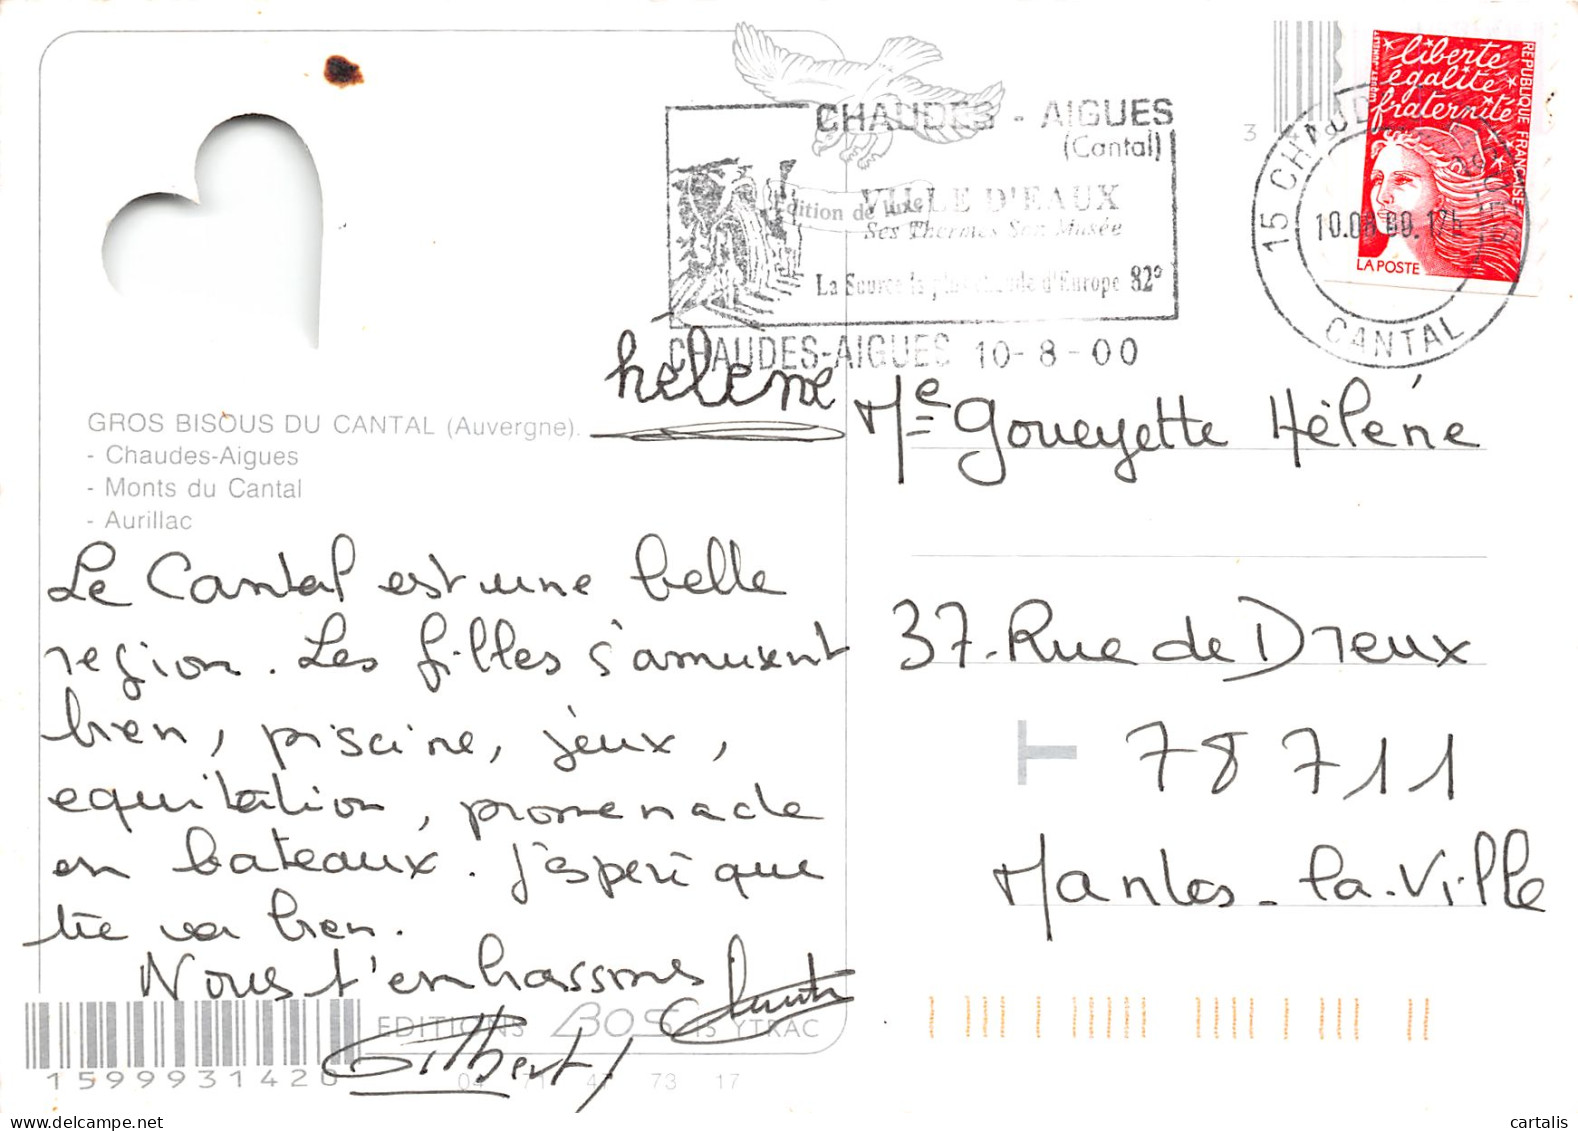 CHAUDES - AIGUES
(Cantal)
VILLE D'EAUX
Edition de luxe
Ses Thermes Son Musée
La Source la plus chaude d'Europe 82°
CHAUDES-AIGUES 10-8-00
3
liberté
égalité
fraternité
REPUBLIQUE FRANÇAISE
LA POSTE
15 CHAUDES
CANTAL
GROS BISOUS DU CANTAL (Auvergne).
- Chaudes-Aigues
- Monts du Cantal
- Aurillac
hélène
Le Cantal est une belle
region. Les filles s'amusent
bien, piscine, jeux,
equitation, promenade
en bateaux. J'espère que
tie va bien.
Nous t'embrassons
Gilbert
EDITIONS BOS 15 YTRAC
1599931420
04 71 47 73 17
Me Goueyette Hélène
37. Rue de Dreux
T 78711
Mantes-la-Ville
cartalis